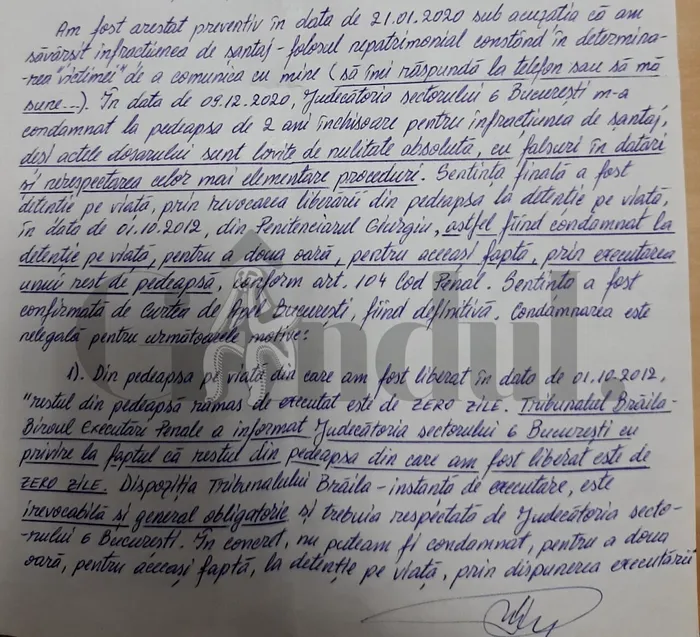 Am fost arestat preventiv în data de 21.01.2020 sub acuzatia că am
săvârsit infractiunea de santaj - folosul nepatrimonial constând în determina-
-rea "victimei" de a comunica cu mine (să îmi răspundă la telefon sau să mă
sune...). În data de 09.12.2020, Judecătoria sectorului 6 București m-a
condamnat la pedeapsa de 2 ani închisoare pentru infractiunea de santaj,
desi actele dosarului sunt lovite de nulitate absolută, cu falsuri în datări
și nerespectarea celor mai elementare proceduri. Sentinta finală a fost
detentie pe viată, prin revocarea liberării din pedeapsa la detentie pe viată,
în data de 01.10.2012, din Penitenciarul Giurgiu, astfel fiind condamnat la
detentie pe viată, pentru a doua oară, pentru aceeasi faptă, prin executarea
unui rest de pedeapsă, conform art. 104 Cod Penal. Sentinta a fost
confirmată de Curtea de Apel București, fiind definitivă. Condamnarea este
nelegală pentru următoarele motive:
1). Din pedeapsa pe viată din care am fost liberat în data de 01.10.2012,
"restul din pedeapsa rămas de executat este de ZERO ZILE. Tribunalul Brăila-
Biroul Executări Penale a informat Judecătoria sectorului 6 București cu
privire la faptul că restul din pedeapsa din care am fost liberat este de
ZERO ZILE. Dispoziția Tribunalului Brăila - instantă de executare, este
irevocabilă și general obligatorie si trebuia respectată de Judecătoria secto-
-rului 6 București. În concret, nu puteam fi condamnat, pentru a doua
oară, pentru aceeași faptă, la detenție pe viată, prin dispunerea executării
Gândul.